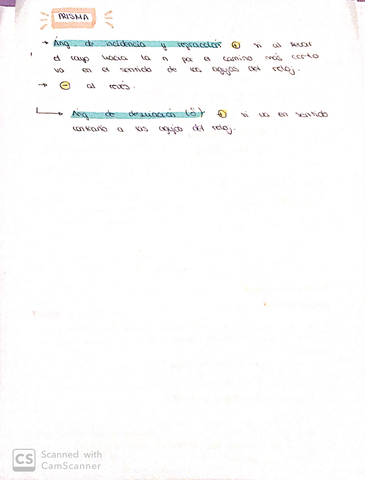 PRISMA
→ Áng de incidencia y refracción ⊕ si al llevar
el rayo hacia la n por el camino más corto
va en el sentido de las agujas del reloj.
→ ⊖ al revés.
→ Áng de desviación (δ) ⊕ si va en sentido
contrario a las agujas del reloj.
CS Scanned with
CamScanner